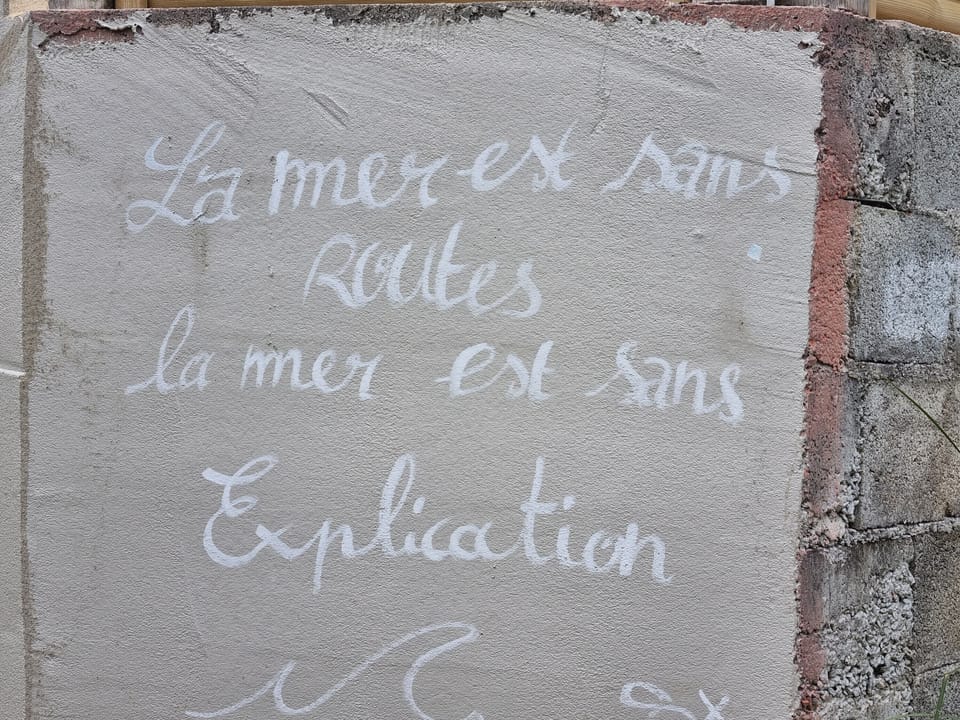 La mer est sans
Routes
la mer est sans
Explication